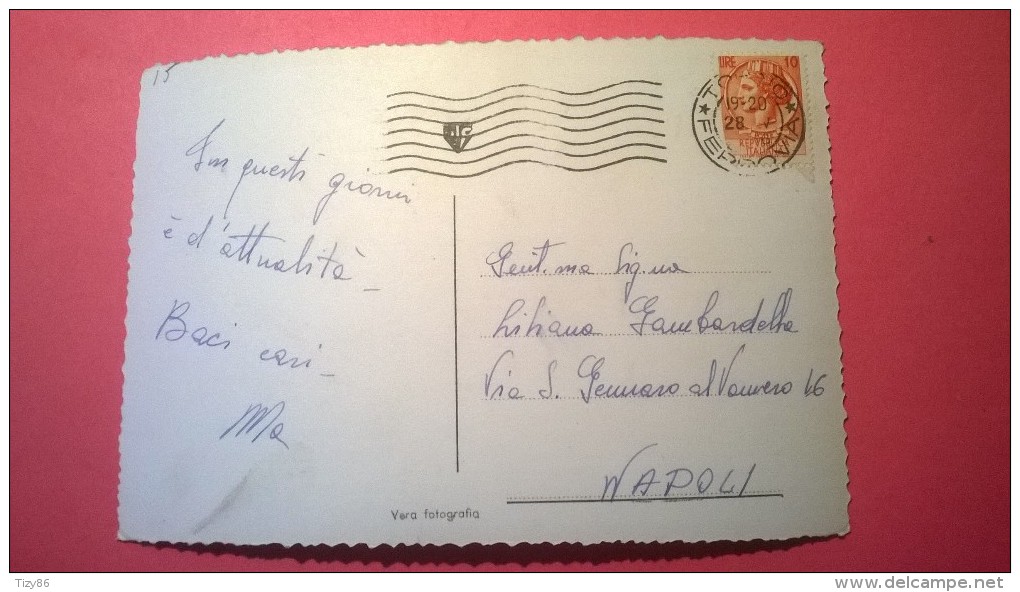 15
LIRE 10
TORINO
19-20
28 V
FERROVIA
In questi giorni
è d'attualità
Baci cari
Ma
Gent.ma Sig.na
Liliana Gambardella
Via S. Gennaro al Vomero 16
NAPOLI
Vera fotografia
Tizy86
www.delcampe.net